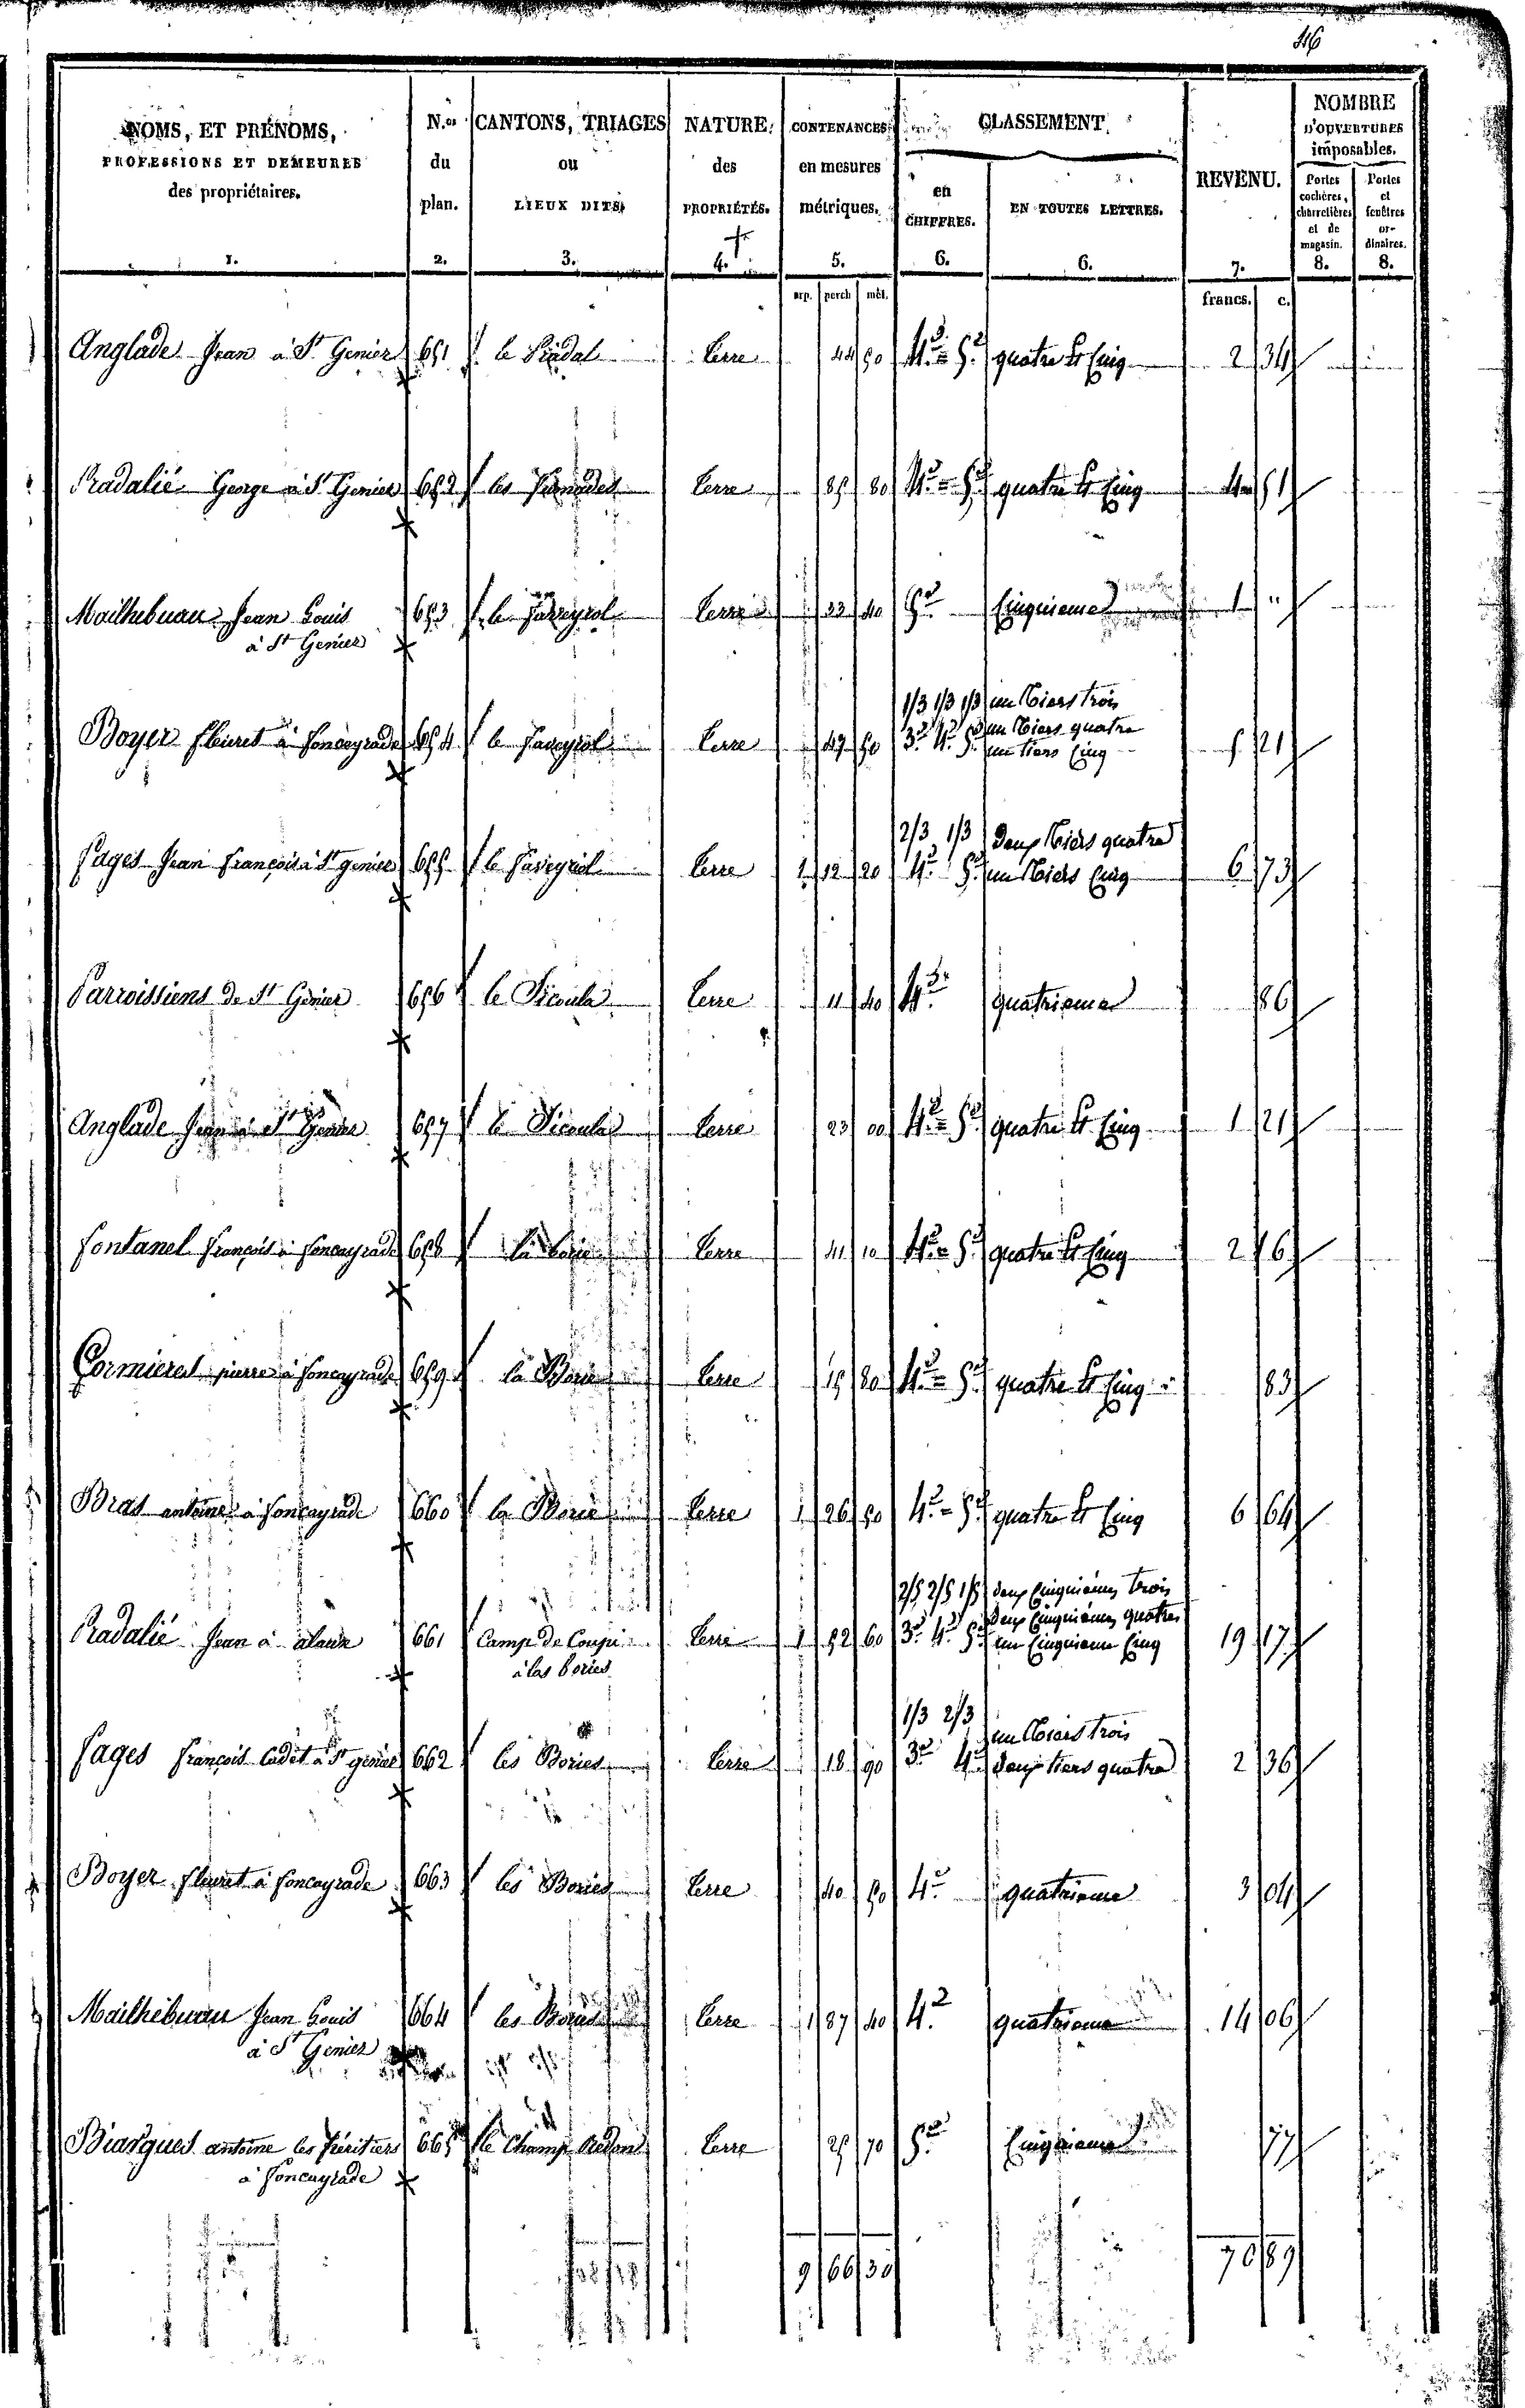 46
NOMS, ET PRÉNOMS,
PROFESSIONS ET DEMEURES
des propriétaires.
1.
N.os
du
plan.
2.
CANTONS, TRIAGES
ou
LIEUX DITS.
3.
NATURE
des
PROPRIÉTÉS.
4.
CONTENANCES
en mesures
métriques.
5.
CLASSEMENT
en
CHIFFRES.
6.
EN TOUTES LETTRES.
6.
REVENU.
7.
NOMBRE
D'OUVERTURES
imposables.
Portes
cochères,
charretières
et de
magasin.
8.
Portes
et
fenêtres
or-
dinaires.
8.
arp. perch mèt.
francs. c.
Anglade Jean à St Genier 651 le Terre 44 50 4e = 5e quatre et Cinq 2 34
Pradalié George à St Genier 652 les Terre 85 80 4e = 5e quatre et Cinq 4 51
Mailhebuau Jean Louis 653 le Terre 33 40 5e Cinquieme 1 "
à St Genier
1/3 1/3 1/3 un tiers trois
Boyer fleuret à foncayrade 654 le Terre 47 50 3e 4e 5e un tiers quatre 5 21
un tiers Cinq
2/3 1/3 deux tiers quatre
fages Jean françois à St genier 655 le Terre 1 12 20 4e 5e un tiers Cinq 6 73
Parroissiens de St Genier 656 le Terre 11 40 4e quatrieme 86
Anglade Jean à St Genier 657 Terre 23 00 4e = 5e quatre et Cinq 1 21
fontanel françois à foncayrade 658 la borie Terre 41 10 4e = 5e quatre et Cinq 2 16
Cormieres pierre à foncayrade 659 la Borie Terre 15 80 4e = 5e quatre et Cinq 83
Bras antoine à foncayrade 660 la Borie Terre 1 26 50 4e = 5e quatre et Cinq 6 64
2/5 2/5 1/5 deux Cinquiemes trois
Pradalié Jean à alaux 661 Camp de Terre 1 52 60 3e 4e 5e deux Cinquiemes quatre 19 17
à las bories un Cinquieme Cinq
1/3 2/3 un tiers trois
fages françois Cadet à St genier 662 les Bories Terre 18 90 3e 4e deux tiers quatre 2 36
Boyer fleuret à foncayrade 663 les Bories Terre 40 50 4e quatrieme 3 04
Mailhebuau Jean Louis 664 les Bories Terre 1 87 40 4e quatrieme 14 06
à St Genier
Biargues antoine les héritiers 665 le Champ Redon Terre 25 70 5e Cinquieme 77
à foncayrade
9 66 30 70 89